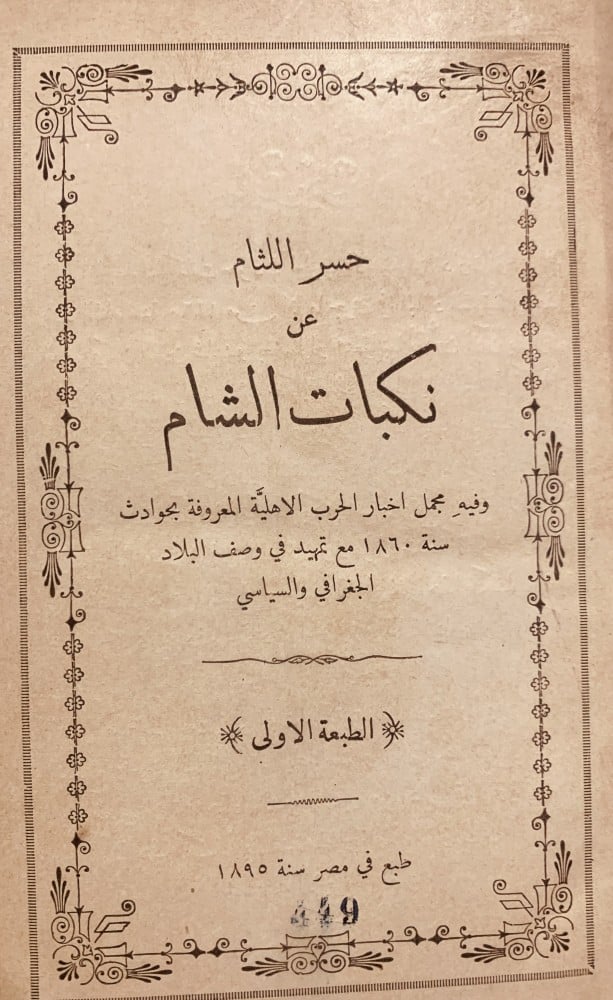 حسر اللثام
عن
نكبات الشام
وفيهِ مجمل اخبار الحرب الاهليَّة المعروفة بحوادث
سنة ١٨٦٠ مع تمهيد في وصف البلاد
الجغرافي والسياسي
الطبعة الاولى
طبع في مصر سنة ١٨٩٥
449